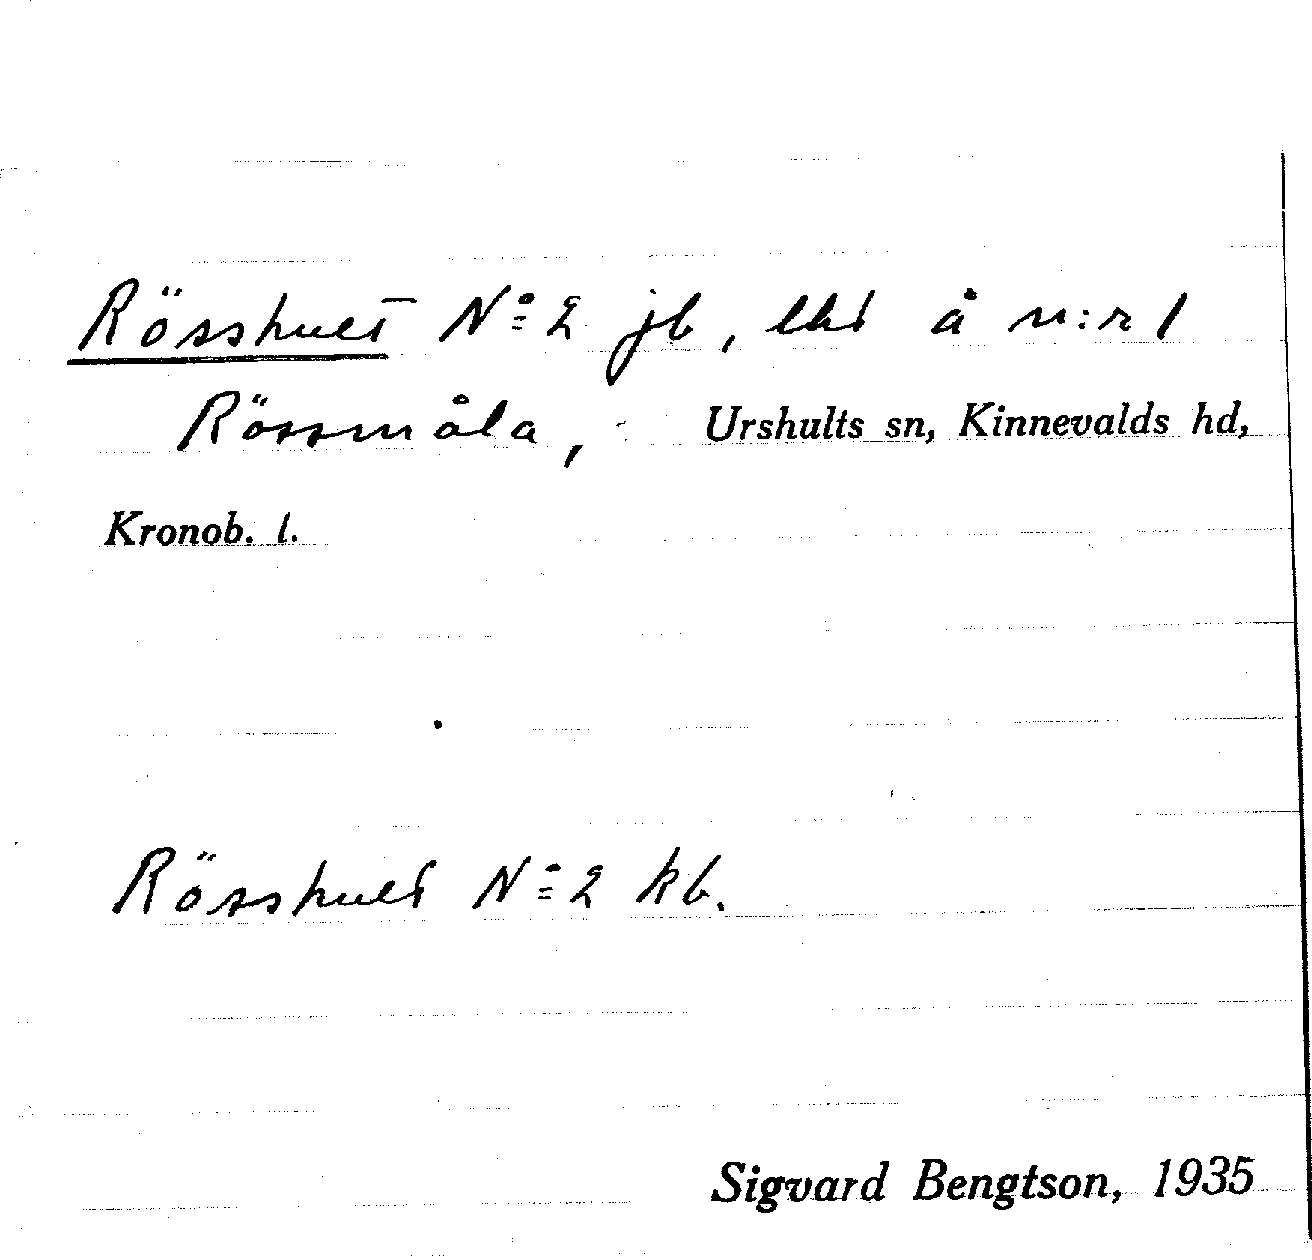 Rösshult N:o 2 jb, lht å n:r 1
Rössmåla, Urshults sn, Kinnevalds hd,
Kronob. l.
Rösshult N:o 2 kb.
Sigvard Bengtson, 1935